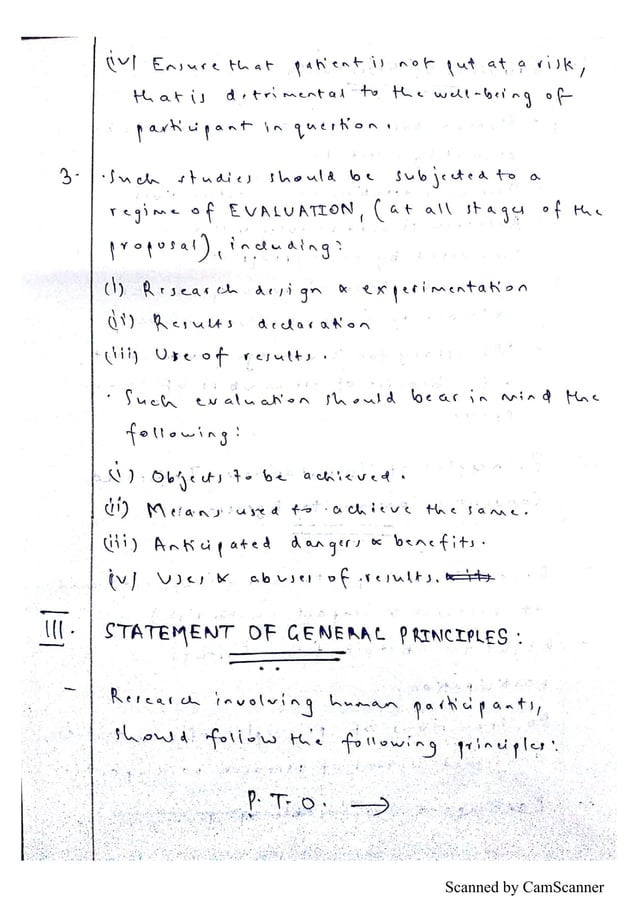 (iv) Ensure that patient is not put at a risk,
that is detrimental to the well-being of
participant in question.
3. · Such studies should be subjected to a
regime of EVALUATION, (at all stages of the
proposal), including:
(i) Research design & experimentation
(ii) Results declaration
(iii) Use of results.
· Such evaluation should bear in mind the
following:
(i) Objects to be achieved.
(ii) Means used to achieve the same.
(iii) Anticipated dangers & benefits.
(iv) Uses & abuses of results.
III. STATEMENT OF GENERAL PRINCIPLES:
– Research involving human participants,
should follow the following principles:
P.T.O. →
Scanned by CamScanner